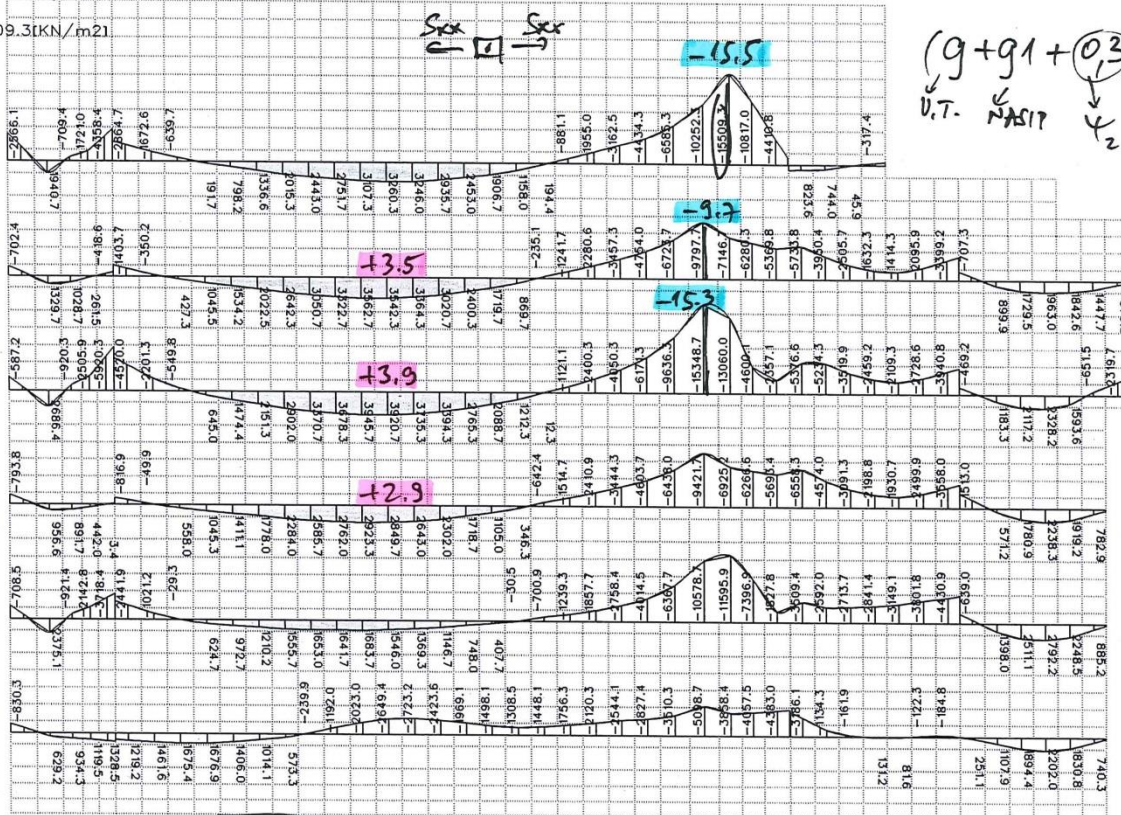 09.3[KN/m2]
Sxx Sxx
-15.5
(g+g1+0,3
V.T. NASIP ψ2
-2566.1 -709.4 -1721.0 -4358.4 -2864.7 -1672.6 -639.7 -881.1 -1955.0 -3162.5 -4434.3 -6585.3 -10252. -15509.3 -10817.0 -4410.8 -317.4
1940.7 191.7 798.2 1336.6 2015.3 2443.0 2751.7 3107.3 3260.3 3246.0 2935.7 2453.0 1906.7 1158.0 194.4 823.6 744.0 45.9
-9.7
+3.5
-702.4 -418.6 -1403.7 -350.2 -235.1 -1241.7 -2280.6 -3457.3 -4764.0 -6723.7 -9797. -7146. -6280.3 -5369.8 -5733.8 -3950.4 -2505.7 -1632.3 -1414.3 -2095.9 -3399.2 -707.3
1329.7 1028.7 261.5 427.3 1045.5 1534.2 2022.5 2642.3 3050.7 3322.7 3562.7 3542.3 3364.3 3020.7 2400.3 1719.7 869.7 899.9 1729.5 1963.0 1842.6 1447.7
-15.3
+3.9
-587.2 -920.3 -2505.9 -5920.3 -4520.0 -2201.3 -549.8 -1121.1 -2400.3 -4050.3 -6171.3 -9636. -15348.7 -13060.0 -4600. 357.1 -5376.6 -5234.3 -3509.9 -2459.2 -2109.3 -2728.6 -3940.8 -469.2 -651.5 2319.7
2686.4 645.0 1474.4 2151.3 2902.0 3370.7 3678.3 3945.7 3920.7 3735.3 3394.3 2765.3 2088.7 1212.3 12.3 1183.3 2117.2 2328.2 1593.6
+2.9
-793.8 -816.9 -49.9 -642.4 -1514.7 -2410.9 -3444.3 -4603.7 -6438.0 -9421. -6925. -6266.6 -5693.4 -6558.3 -4574.0 -3091.3 -2198.8 -1930.7 -2499.9 -3558.0 -1513.0
956.6 891.7 442.0 3.4 558.0 1045.3 1411.1 1778.0 2284.0 2585.7 2762.0 2923.3 2849.7 2643.0 2302.0 1718.7 1105.0 346.3 571.2 1780.9 2238.3 1919.2 782.9
-708.5 -921.4 -2142.8 -3718.4 -2441.9 -1021.2 -29.3 -30.5 -700.9 -1239.3 -1857.7 -2758.4 -4014.5 -6367.7 -10578. -11595.9 -7396.9 -1827.8 -3509.4 -2592.0 -2713.7 -2841.4 -3149.1 -3801.8 -4430.9 -639.0
2375.1 624.7 972.7 1210.2 1555.7 1653.0 1641.7 1683.7 1546.0 1369.3 1146.7 748.0 407.7 1398.0 2511.1 2792.2 1248.5 885.2
-830.3 -239.9 -1192.0 -2023.0 -2649.4 -2723.2 -2423.6 -1969.1 -1498.1 -1308.5 -1448.1 -1756.3 -2120.3 -2544.1 -2827.4 -3510.3 -5098.7 -3858.4 -4057.5 -4383.0 -3186.1 -1134.3 -161.9 -122.3 -184.8
629.2 934.3 1119.5 1328.5 1219.2 1461.6 1675.4 1676.9 1406.0 1014.1 573.3 131.2 81.6 251.1 1107.9 1894.4 2202.0 1830.8 740.3